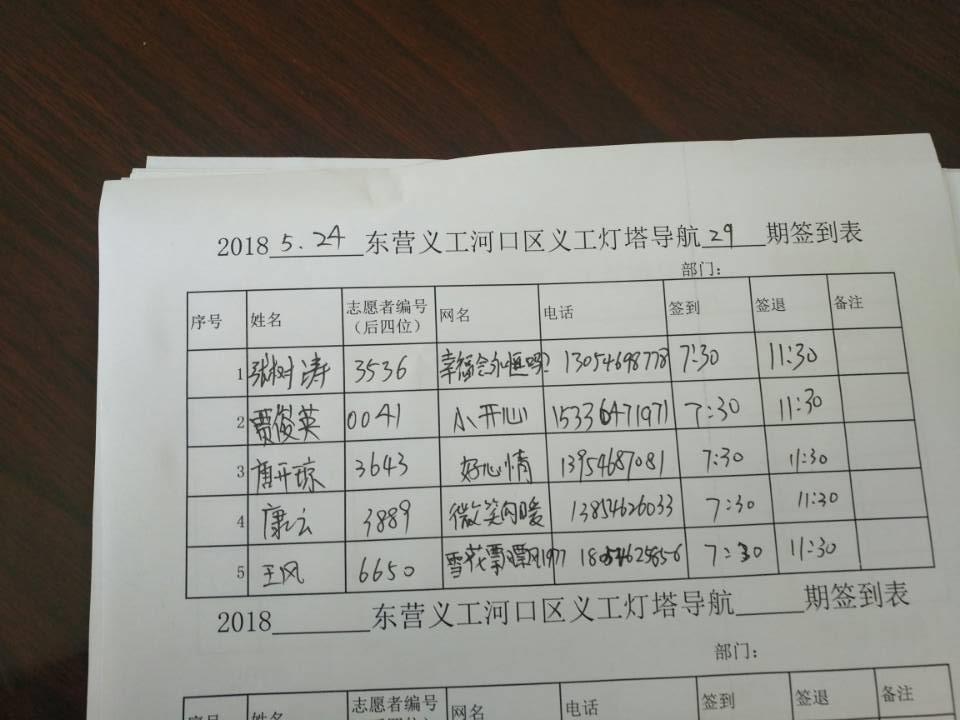 2018 5.24 东营义工河口区义工灯塔导航 29 期签到表
部门：
序号 姓名 志愿者编号（后四位） 网名 电话 签到 签退 备注
1 张树涛 3536 幸福会永恒吗? 13054698778 7:30 11:30
2 贾俊英 0041 小开心 15336471971 7:30 11:30
3 唐开琼 3643 好心情 13954687081 7:30 11:30
4 康云 3889 微笑向暖 13854626033 7:30 11:30
5 王风 6650 雪花飘飘1977 7:30 11:30
2018 东营义工河口区义工灯塔导航 期签到表
部门：
序号 姓名 志愿者编号 网名 电话 签到 签退 备注